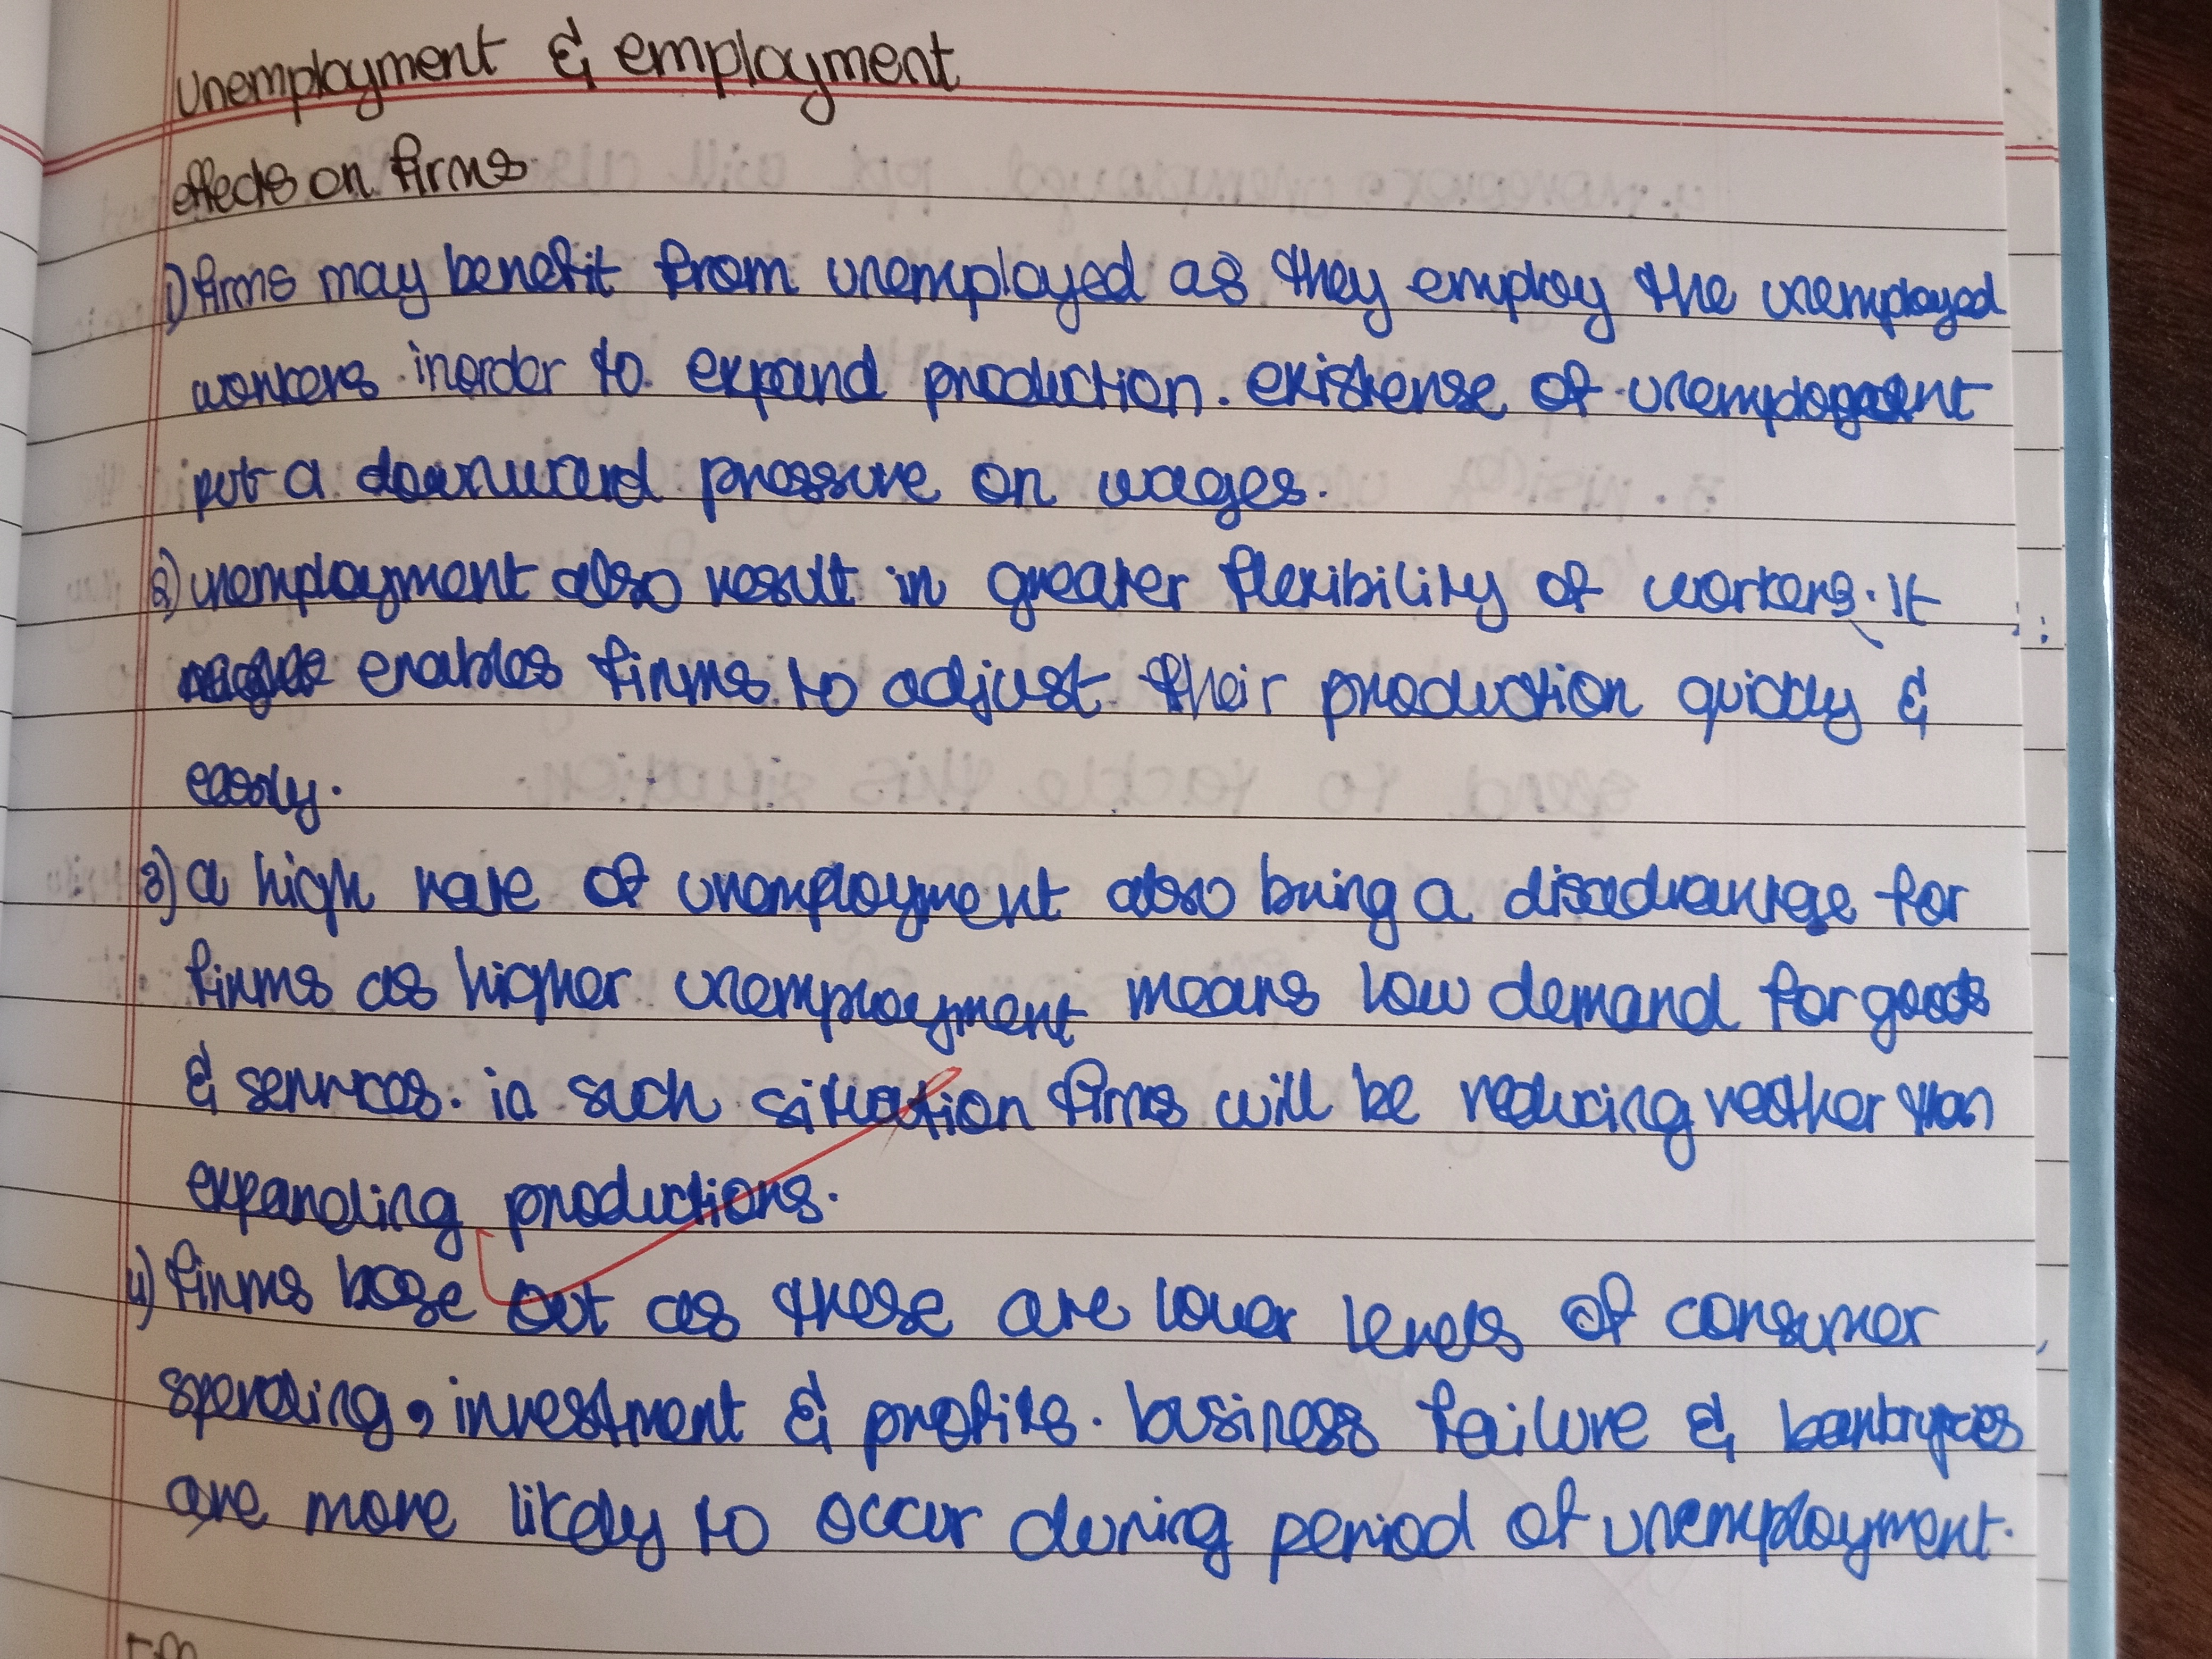 unemployment & employment
effects on firms
1) firms may benefit from unemployed as they employ the unemployed
workers inorder to expand production. existense of unemployment
put a downward pressure on wages.
2) unemployment also result in greater flexibility of workers. it
enables firms to adjust their production quickly &
easily.
3) a high rate of unemployment also bring a disadvantage for
firms as higher unemployment means low demand for goods
& services. in such situation firms will be reducing rather than
expanding productions.
4) firms lose out as these are lower levels of consumer
spending, investment & profits. business failure & bankrupcies
are more likely to occur during period of unemployment.